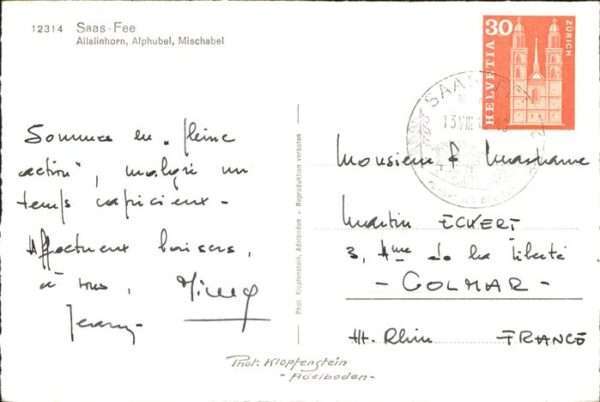 12314 Saas-Fee
Allalinhorn, Alphubel, Mischabel
Sommes en "pleine
action", malgré un
temps capricieux -
Affectueux baisers,
à tous,
Phot. Klopfenstein, Adelboden - Reproduktion verboten
HELVETIA 30 ZÜRICH
SAAS
13 VIII
Monsieur & Madame
Martin ECKERT
3, de la liberté
- COLMAR -
Ht. Rhin FRANCE
Phot. Klopfenstein
- Adelboden -